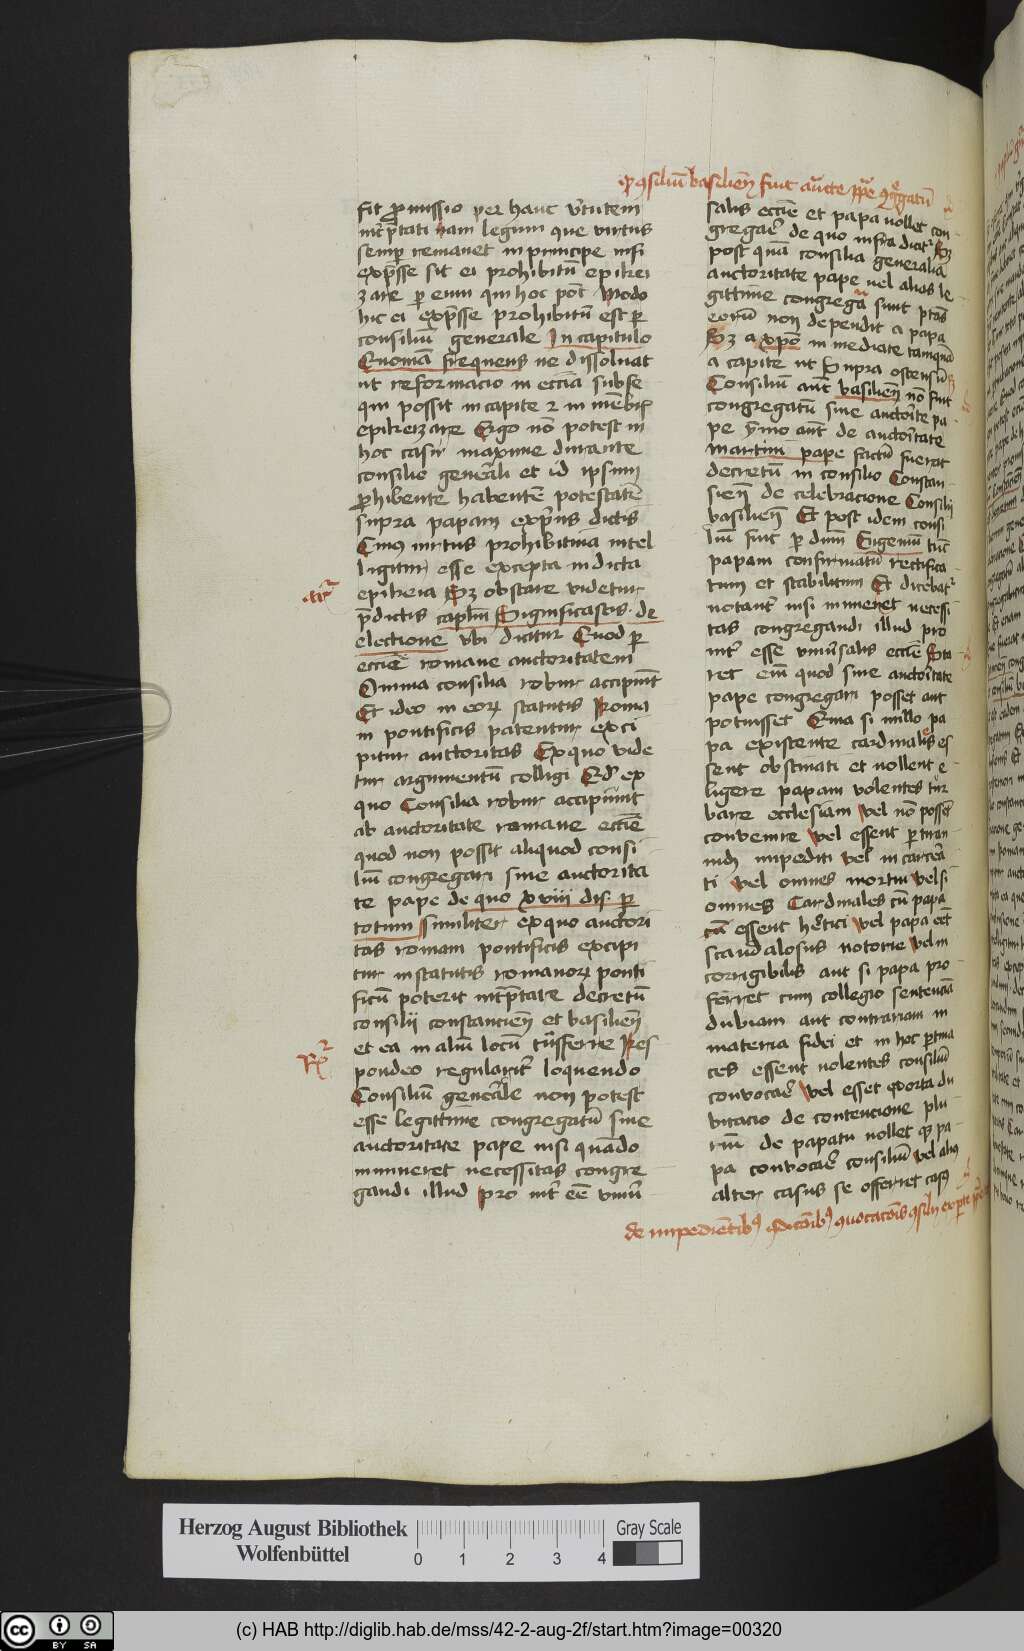 ꝙ ꝯsiliū basilieñ fuit auc̄te pp̄e ꝯg̊gatū
fit ꝓmissio per hanc v̄tutem
int̄p̄tati nam legum que virtus
semꝑ remanet in principe nisi
exp̄sse sit ei prohibitū epikei
zare ꝑ eum qui hoc pōt Modo
hic ei exp̄sse prohibitū est ꝑ
consiliū generale In capitulo
Quoniā frequens ne dissoluat
ut reformacio in eccīa subse
qui possit in capite ⁊ in mēbris
epikeizare Ergo nō potest in
hoc casu maxime durante
consilio genērali et id ipsum
ꝓhibente habentē potestatē
supra papam exp̄ius dictis
Cuiꝰ virtus prohibitiua intel
ligitur esse excepta in dicta
epikeia Sꝫ obstare videtur
p̄dictis caplm̄ Significastis de
electione vbi dicitur Quod ꝑ
eccīe romane auctoritatem
Omnia consilia robur accipiūt
Et ideo in eorꝝ statutis Roma
ni pontificis patentur exci
pitur auctoritas Ex quo vide
tur argumentū colligi Qd̄ ex
quo Consilia robur accipiunt
ab auctoritate romane eccīe
quod non possit aliquod consi
liū congregari sine auctorita
te pape de quo xviii dis. ꝑ
totum Similiter ex quo auctori
tas romani pontificis excipi
tur in statutis romanorꝝ ponti
ficū poterit int̄p̄tare decretū
consilij constancieñ et basilieñ
et ea in aliū locū trāsferre Res
pondeo regularit̄ loquendo
Consiliū genērale non potest
esse legittime congregatū sine
auctoritate pape nisi quādo
immineret necessitas congre
gandi illud pro int̄ eē vniū
salis eccīe et papa nollet con
gregar̄ de quo infra dicit̄ Sꝫ
post quā consilia generalia
auctoritate pape vel alias le
gittime congregā sunt ptās
eorū non dependit a papa
Sꝫ a xp̄o in mediate tamquā
a capite ut supra ostensū
Consiliū aūt basilieñ nō fuit
congregatū sine auctoīte pa
pe ymo aūt de auctoītate
martini pape factū fuerat
decretū in consilio Constan
sieñ de celebracione Consilij
basilieñ Et post idem consi
liū fuit ꝑ dnm̄ Eugeniū tūc
papam confirmatū rectifica
tum et stabilitum Et dicebat̄
notant̄ nisi immineret necessi
tas congregandi illud pro
int̄ esse vniūsalis eccīe Sta
ret eīm quod sine auctoītate
pape congregari posset aut
potuisset Quia si nullo pa
pa existente cardinales es
sent obstinati et nollent e
ligere papam volentes tur
bare ecclesiam vel nō possēt
conuenire vel essent ꝑ tiran
nidꝫ impediti vel in carcera
ti vel omnes mortui vel si
omnes Cardinales cū papa
essent hētici vel papa eēt
scandalosus notorie vel in
corrigibilis aut si papa pro
ferret cum collegio sentenciā
dubiam aut contrariam in
materia fidei et in hoc ꝑtina
ces essent nolentes consiliū
conuocar̄ vel esset exorta du
bitacio de contencione plu
riū de papatu nollet ꝙ pa
pa conuocar̄ consiliū vel aliꝰ
alter casus se offerret casꝰ